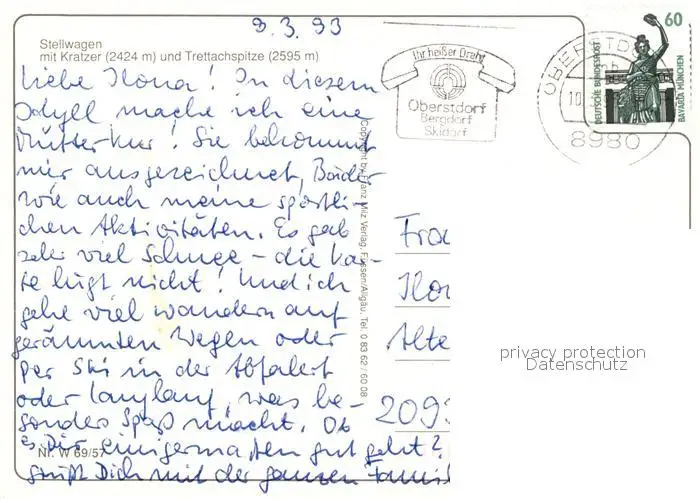 9.3.93
Stellwagen
mit Kratzer (2424 m) und Trettachspitze (2595 m)
Liebe Ilona! In diesem
Idyll mache ich eine
Mütterkur! Sie bekommt
mir ausgezeichnet, Bäder
wie auch meine sportli-
chen Aktivitäten. Es gab
sehr viel Schnee – die Kar-
te lügt nicht! Und ich
gehe viel wandern auf
geräumten Wegen oder
per Ski in der Abfahrt
oder Langlauf, was be-
sonders Spaß macht. Ob
es Dir einigermaßen gut geht?
Grüßt Dich mit der ganzen Famil
Nr. W 69/57
Copyright by Franz Milz Verlag, Füssen/Allgäu, Tel. 0 83 62 / 60 08
Ihr heißer Draht
Oberstdorf
Bergdorf
Skidorf
OBERSTD
10
mb
8980
60
DEUTSCHE BUNDESPOST
BAVARIA MÜNCHEN
Frau
Ilo
Alte
209
privacy protection
Datenschutz